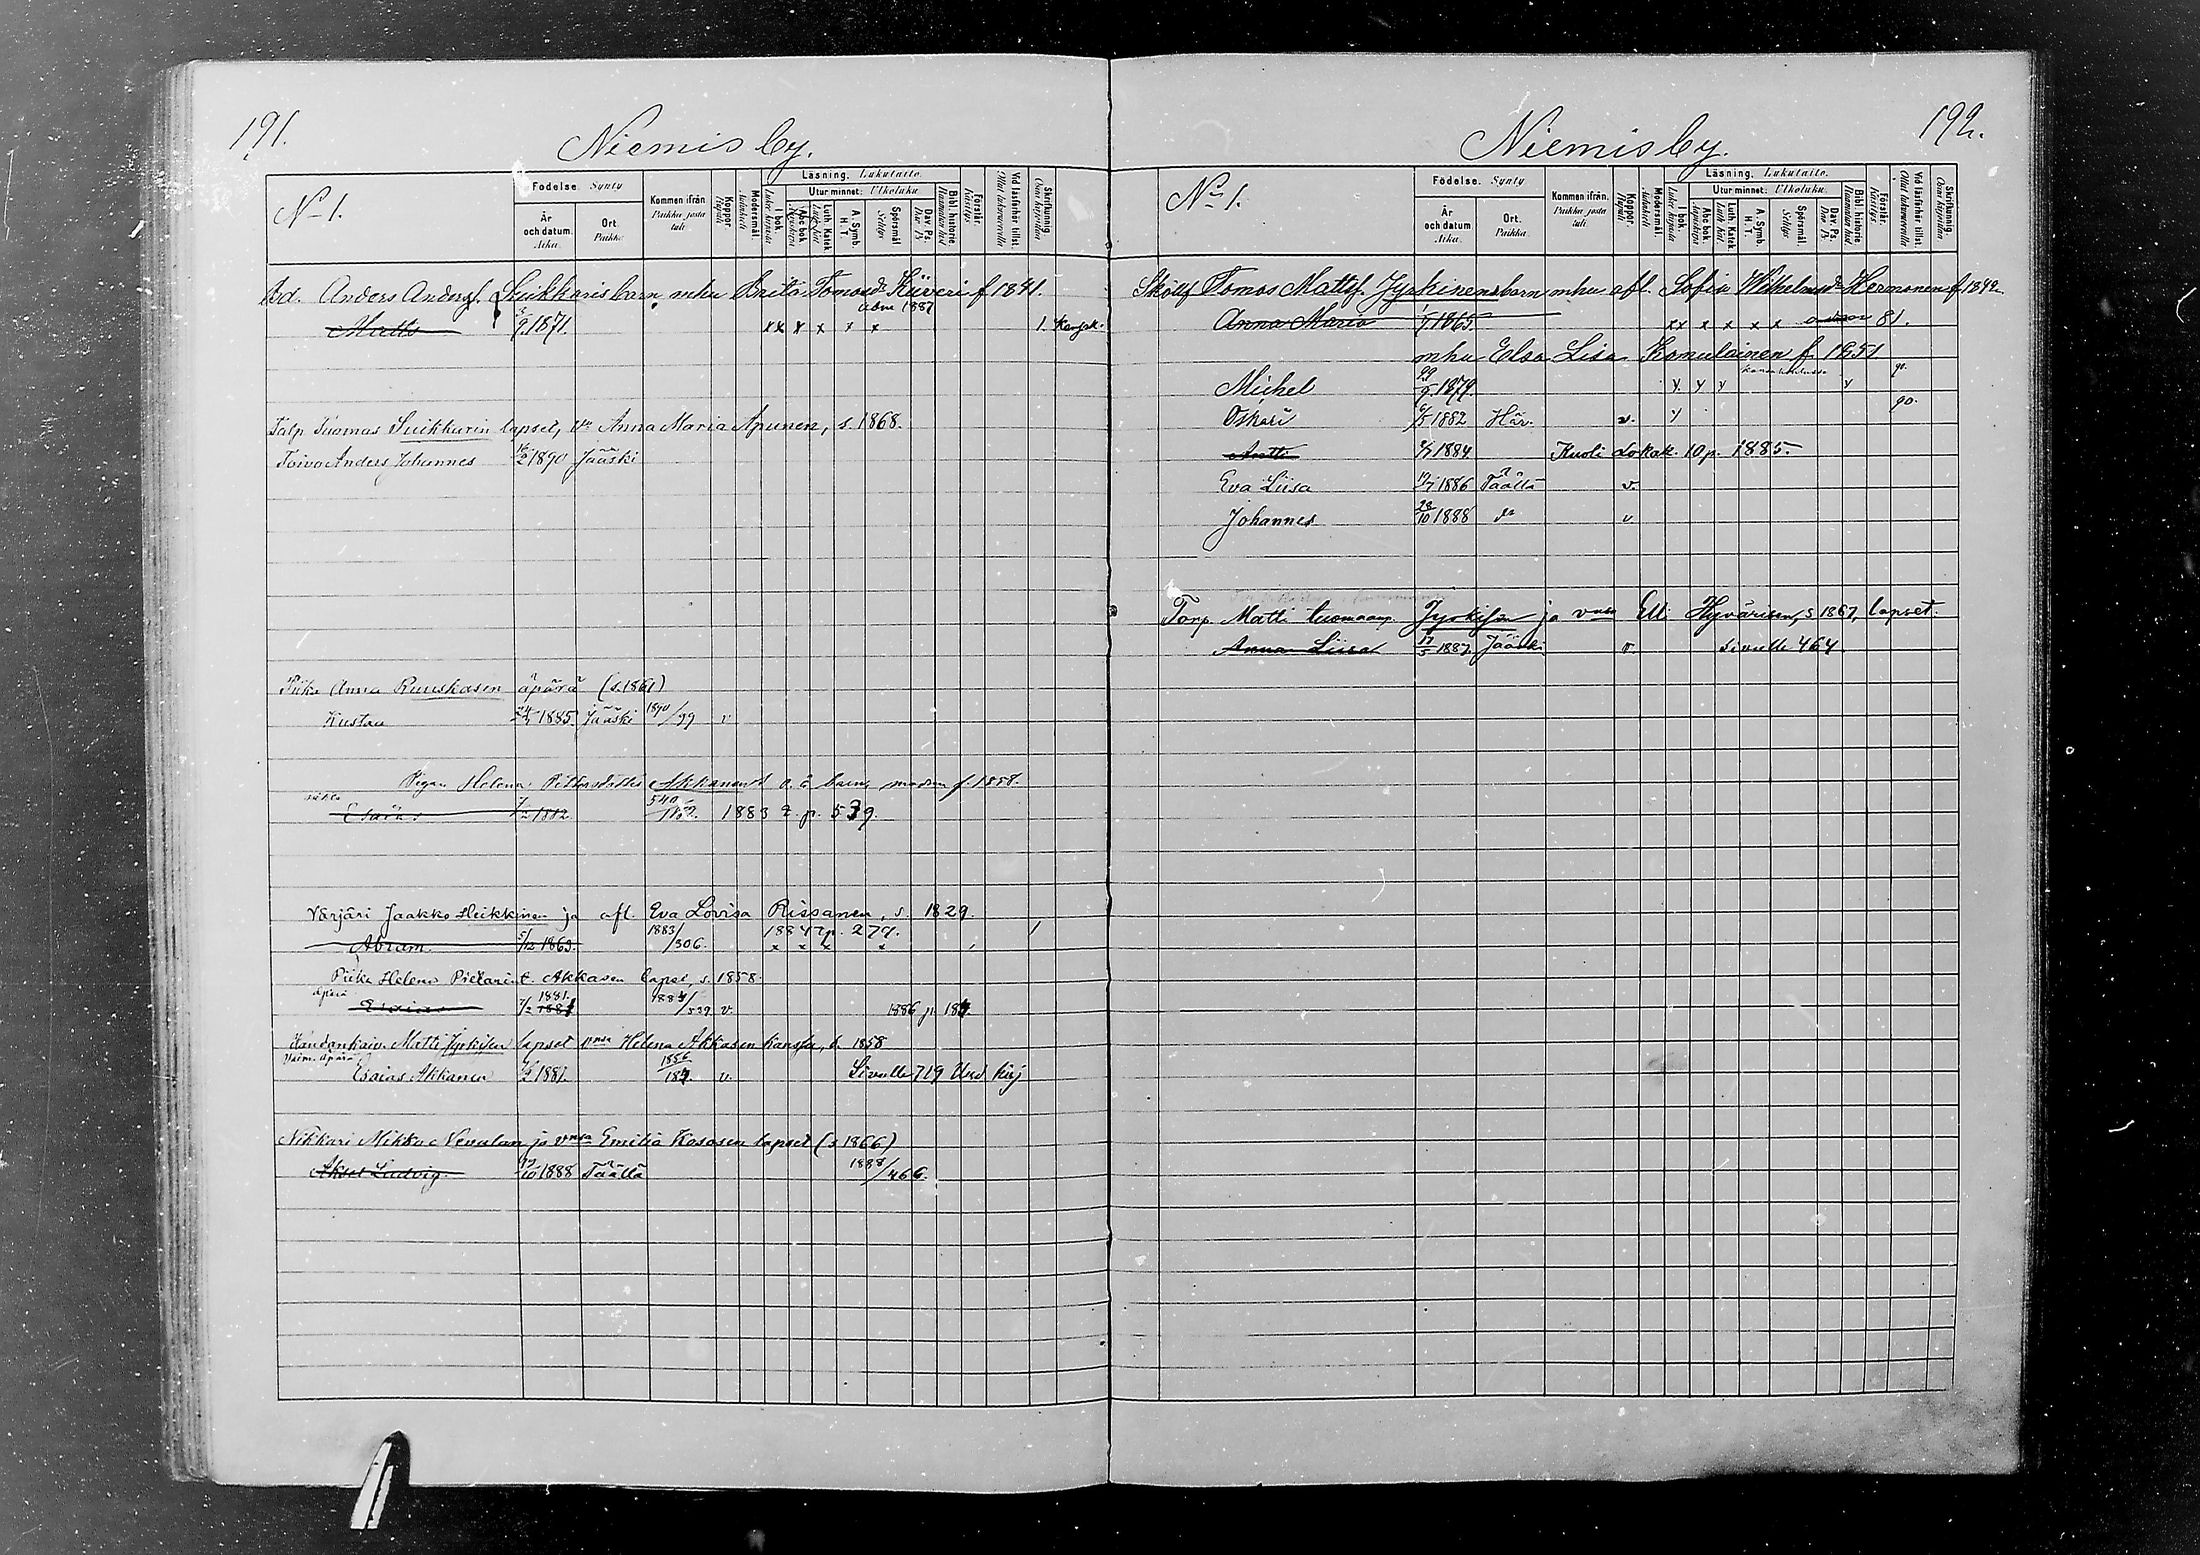 191.
Niemis by.
No 1.
Födelse. Synty
År och datum. Aika.
Ort. Paikka.
Kommen ifrån Paikka josta tuli
Koppor. Rupuli
Modersmål. Äidinkieli
Läsning. Lukutaito.
I bok. Lukee kirjasta
Utur minnet: Ulkoluku.
Abc bok. Aapiskirja
Luth. Katek.
A. Symb. H. T.
Spörsmål
Dav. Ps.
Bibl. historie
Förstår. Käsitys.
Vid läsförhör tillst.
Skriftkunnig.
Ad. Anders Andersf. Suikkaris barn mhu Brita Tomasdr Kiiveri f. 1841.
Matts 3/9 1871. x x x x x x 1887 1.
Talp. Tuomas Suikkarin lapset, vo Anna Maria Apunen, s. 1868.
Toivo Anders Johannes 16/2 1890 Jääski
Piika Anna Ruuskasen äpärä (s. 1861)
Kustaa 1885 Jääski 1890/99 v.
Pigan Helena Pettersdotter Akkanens o. ä. barn, modren f. 1858.
Esaias 7/2 1882 540 1883 p. 539.
Värjäri Jaakko Heikkinen ja afl. Eva Lovisa Rissanen, s. 1829.
Abram. 5/12 1863. 1883/306. 1884 p. 279.
x x x x
Piika Helena Pietarint. Akkasen lapset, s. 1858.
äpärä Esaias 7/2 1881. 1884/539 v. 1886 p.
Matti Jyrkisen lapset vmsa Helena Akkasen kanssa, s. 1858
Vaim. äpärä
Esaias Akkanen 7/2 1881. 1886 v. Sivulle 719 Uud. kirj
Nikkari Mikko Nevalan ja vmsa Emilia Kososen lapset (s 1866)
Aksel Ludvig. 10 1888 Täällä 1888/466.
192.
Niemis by.
No 1.
Födelse. Synty
År och datum. Aika.
Ort. Paikka.
Kommen ifrån. Paikka josta tuli
Koppor. Rupuli
Modersmål. Äidinkieli
Läsning. Lukutaito.
I bok. Lukee kirjasta
Utur minnet: Ulkoluku.
Abc bok.
Luth. Katek.
A. Symb. H. T.
Spörsmål
Dav. Ps.
Bibl. historie
Förstår. Käsitys.
Vid läsförhör tillst.
Skriftkunnig.
Tomas Mattsf. Jyrkinens barn mhu afl. Sofia Wilhelmsdr Hermonen f. 1842
Anna Maria 1865. x x x x x x 81.
mhu Elsa Lisa Komulainen f. 1851.
Michel 29/9 1879. 90.
Oskari 6/5 1882 Här. v. 90.
Antti 1884 Kuoli Lokak. 10 p. 1885.
Eva Liisa 1886 Täällä v.
Johannes 28/10 1888 do v
Torp. Matti Tuomaanp. Jyrkisen ja vmsa Elli Hyvärisen, s 1867, lapset.
Anna Liisa 17/5 1887 Jääski v. sivulle 464